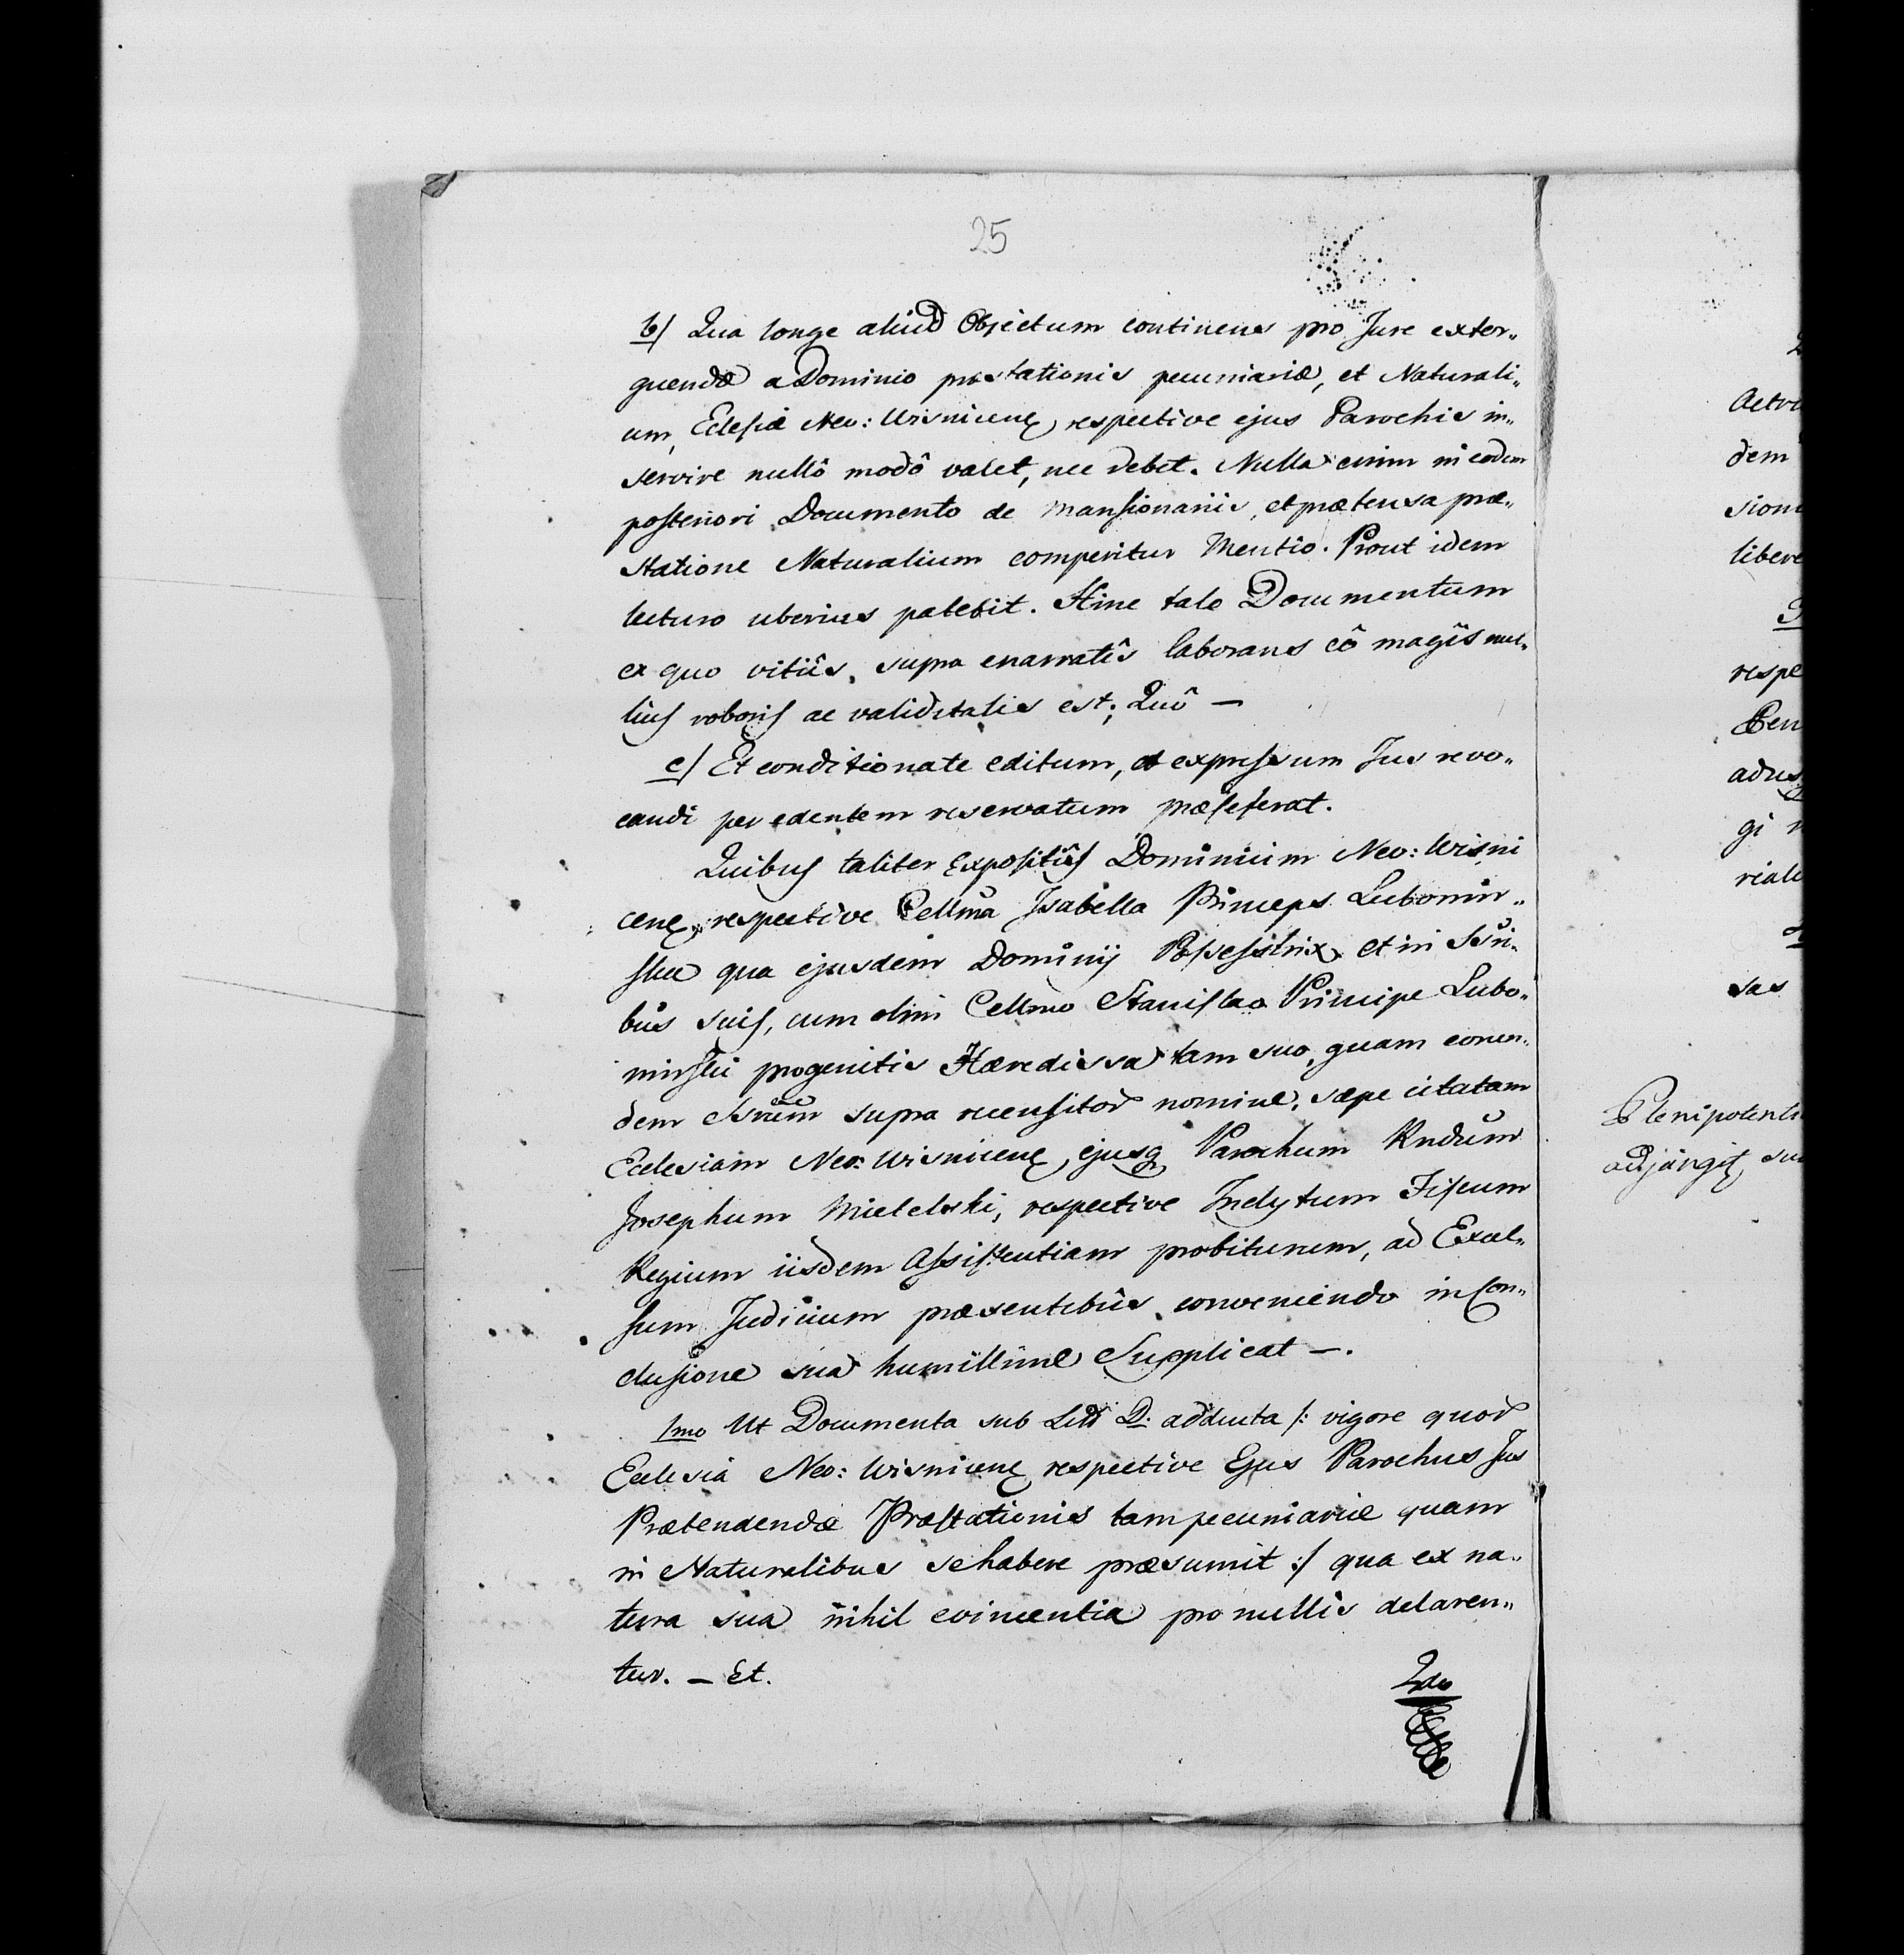 25
b/ Qua longe aliud Objectum continens pro Jure extor„
quendæ a Dominio præstationis pecuniariæ, et Naturali„
um, Eclesiæ Neo: Wisnicenę respective ejus Parochis in„
servire nullô modô valet, nec debet. Nulla enim in eodem
posteriori Documento de Mansionariis, et prætensa præ„
statione Naturalium comperitur Mentio. Prout idem
lecturo uberius patebit. Hinc tale Documentum
ex quo vitiîs supra enarratîs laborans eô magîs nul„
lius roboris ac validitatis est; Quô —
c/ Et conditionate editum, et expressum Jus revo„
candi per edentem reservatum præseferat.
Quibus taliter Expositîs Dominium Neo: Wisni
cenę, respective Cellma Isabella Princeps Lubomir„
ska qua ejusdem Dominij Possessitrix et in
bus suis, cum olim Cellmo Stanislao Principe Lubo„
mirski progenitis Hæredissa tam suo, quam eorun„
dem supra recensitor nomine, sæpe citatam
Ecclesiam Neo: Wisnicenę, ejusq Parochum Rndum
Josephum Mielelski, respective Inclytum Fiscum
Regium iisdem Assistentiam probiturum, ad Excel„
sum Judicium præsentibûs conveniendo in Con„
clusione sua humillime Supplicat —.
1mo Ut Documenta sub Litt D. adducta /: vigore quor
Ecclesia Neo: Wisnicenę respective Ejus Parochus Jus
Prætendendæ Præstationis tam pecuniariæ quam
in Naturalibus se habere præsumit :/ qua ex na„
tura sua nihil evincentia pro nullis delaren„
tur. — Et.
2do
dem
libere
respe
gi
sas
Plenipotenti
adjungit